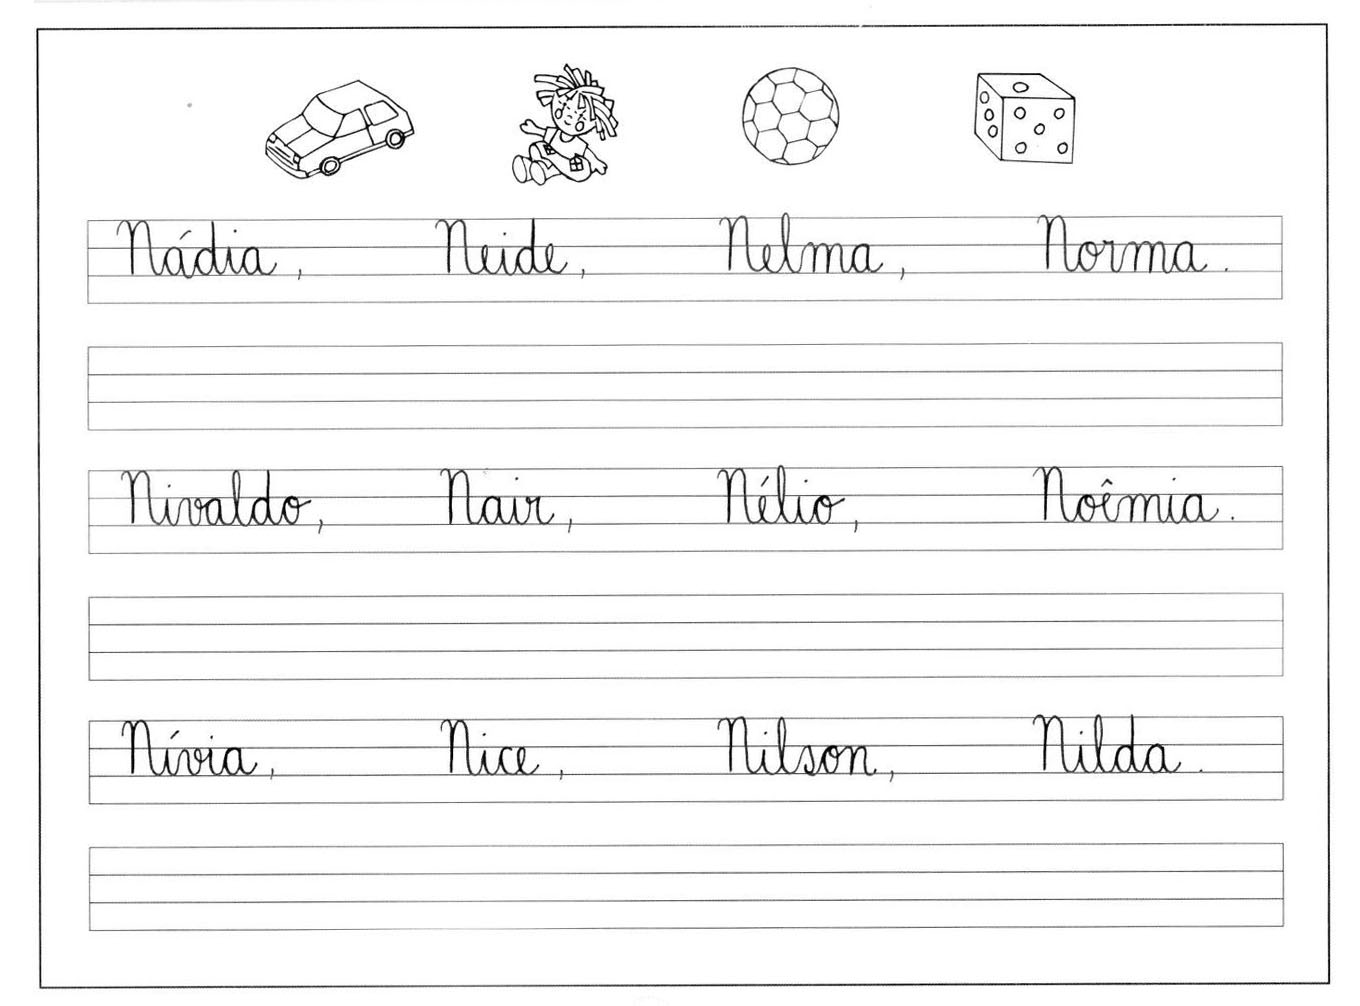 Nádia, Neide, Nelma, Norma.
Nivaldo, Nair, Nélio, Noêmia.
Nívia, Nice, Nilson, Nilda.